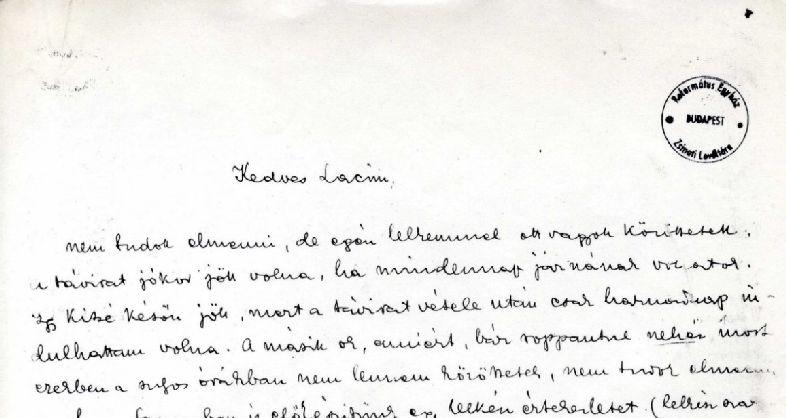 Református Egyház
BUDAPEST
Zsinati Levéltára
Kedves Lacim,
nem tudok elmenni, de egén lelkemmel ott vagyok köztetek.
a távirat jókor jött volna, ha mindennap járnának vonatok.
Így kissé későn jött, mert a távirat vétele után csak harmadnap in-
dulhattam volna. A másik ok, amiért, bár roppantul nehéz most
ezekben a súlyos órákban nem lennem közöttetek, nem tudok elmenni
is előkészítünk egy lelkész értekezletet. (lelkész